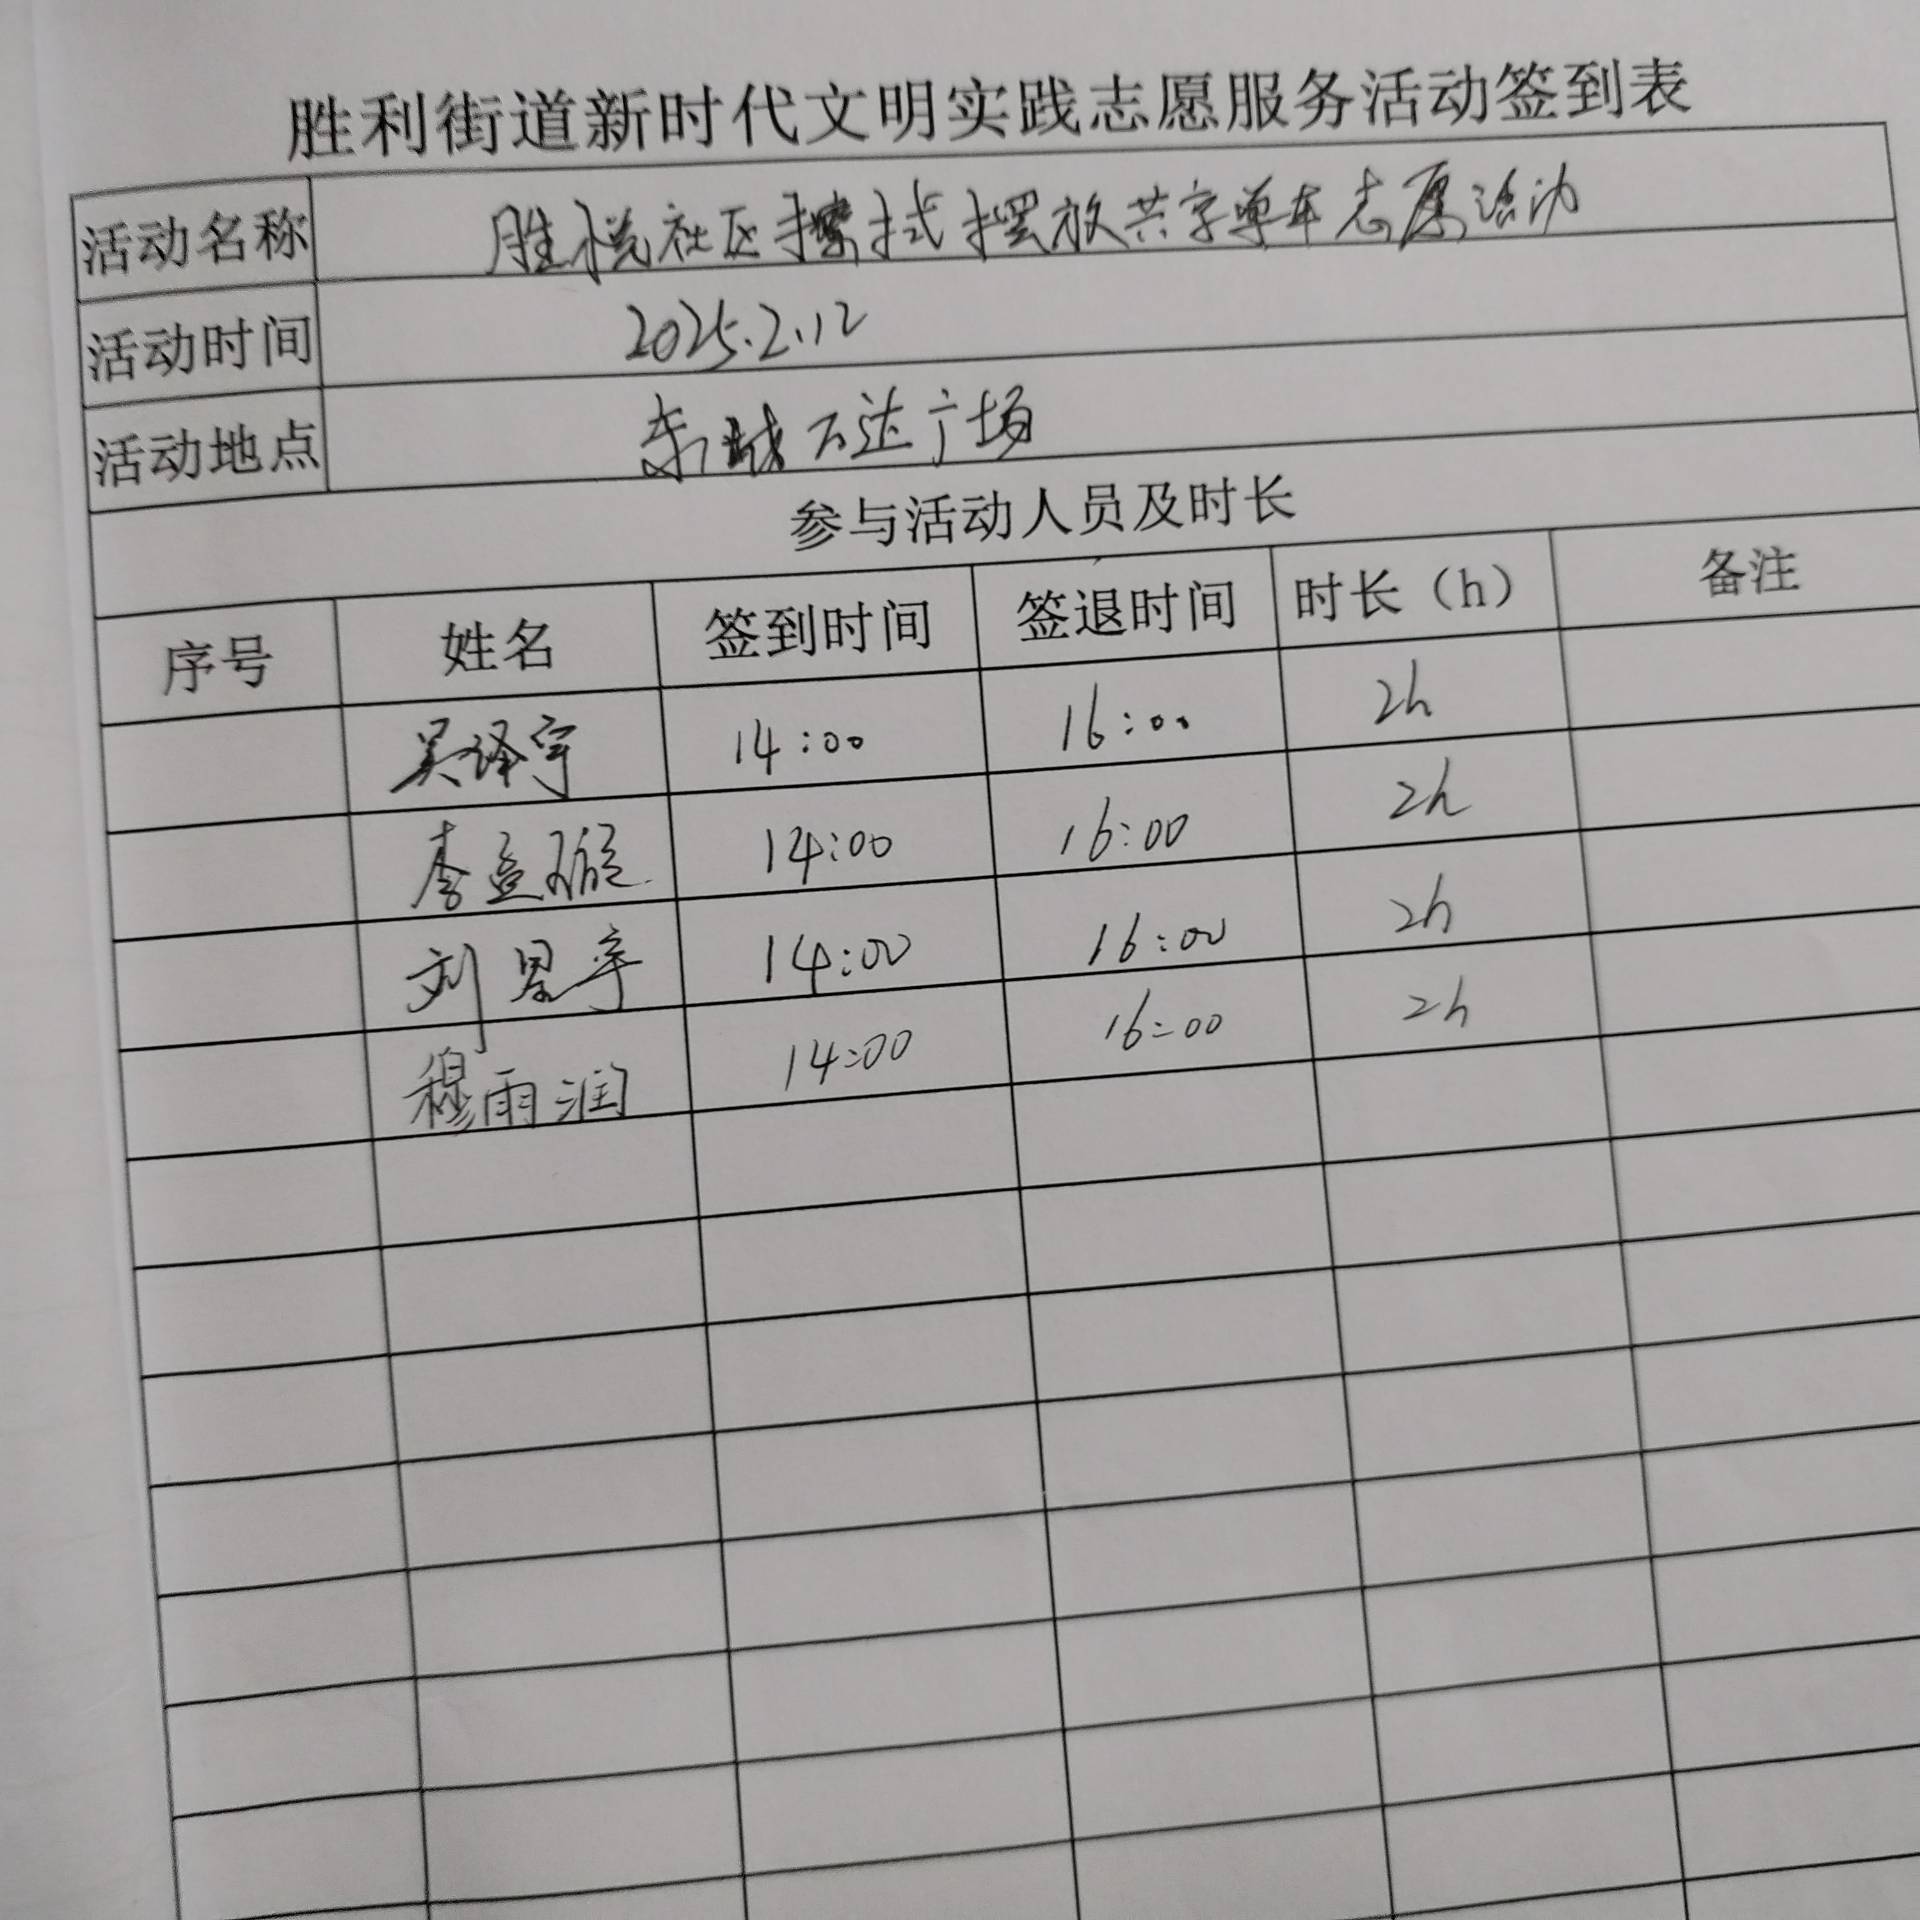 胜利街道新时代文明实践志愿服务活动签到表
活动名称 胜悦社区擦拭摆放共享单车志愿活动
活动时间 2025.2.12
活动地点 东城万达广场
参与活动人员及时长
序号 姓名 签到时间 签退时间 时长（h） 备注
吴译宇 14:00 16:00 2h
李孟璇 14:00 16:00 2h
刘星宇 14:00 16:00 2h
穆雨润 14:00 16:00 2h